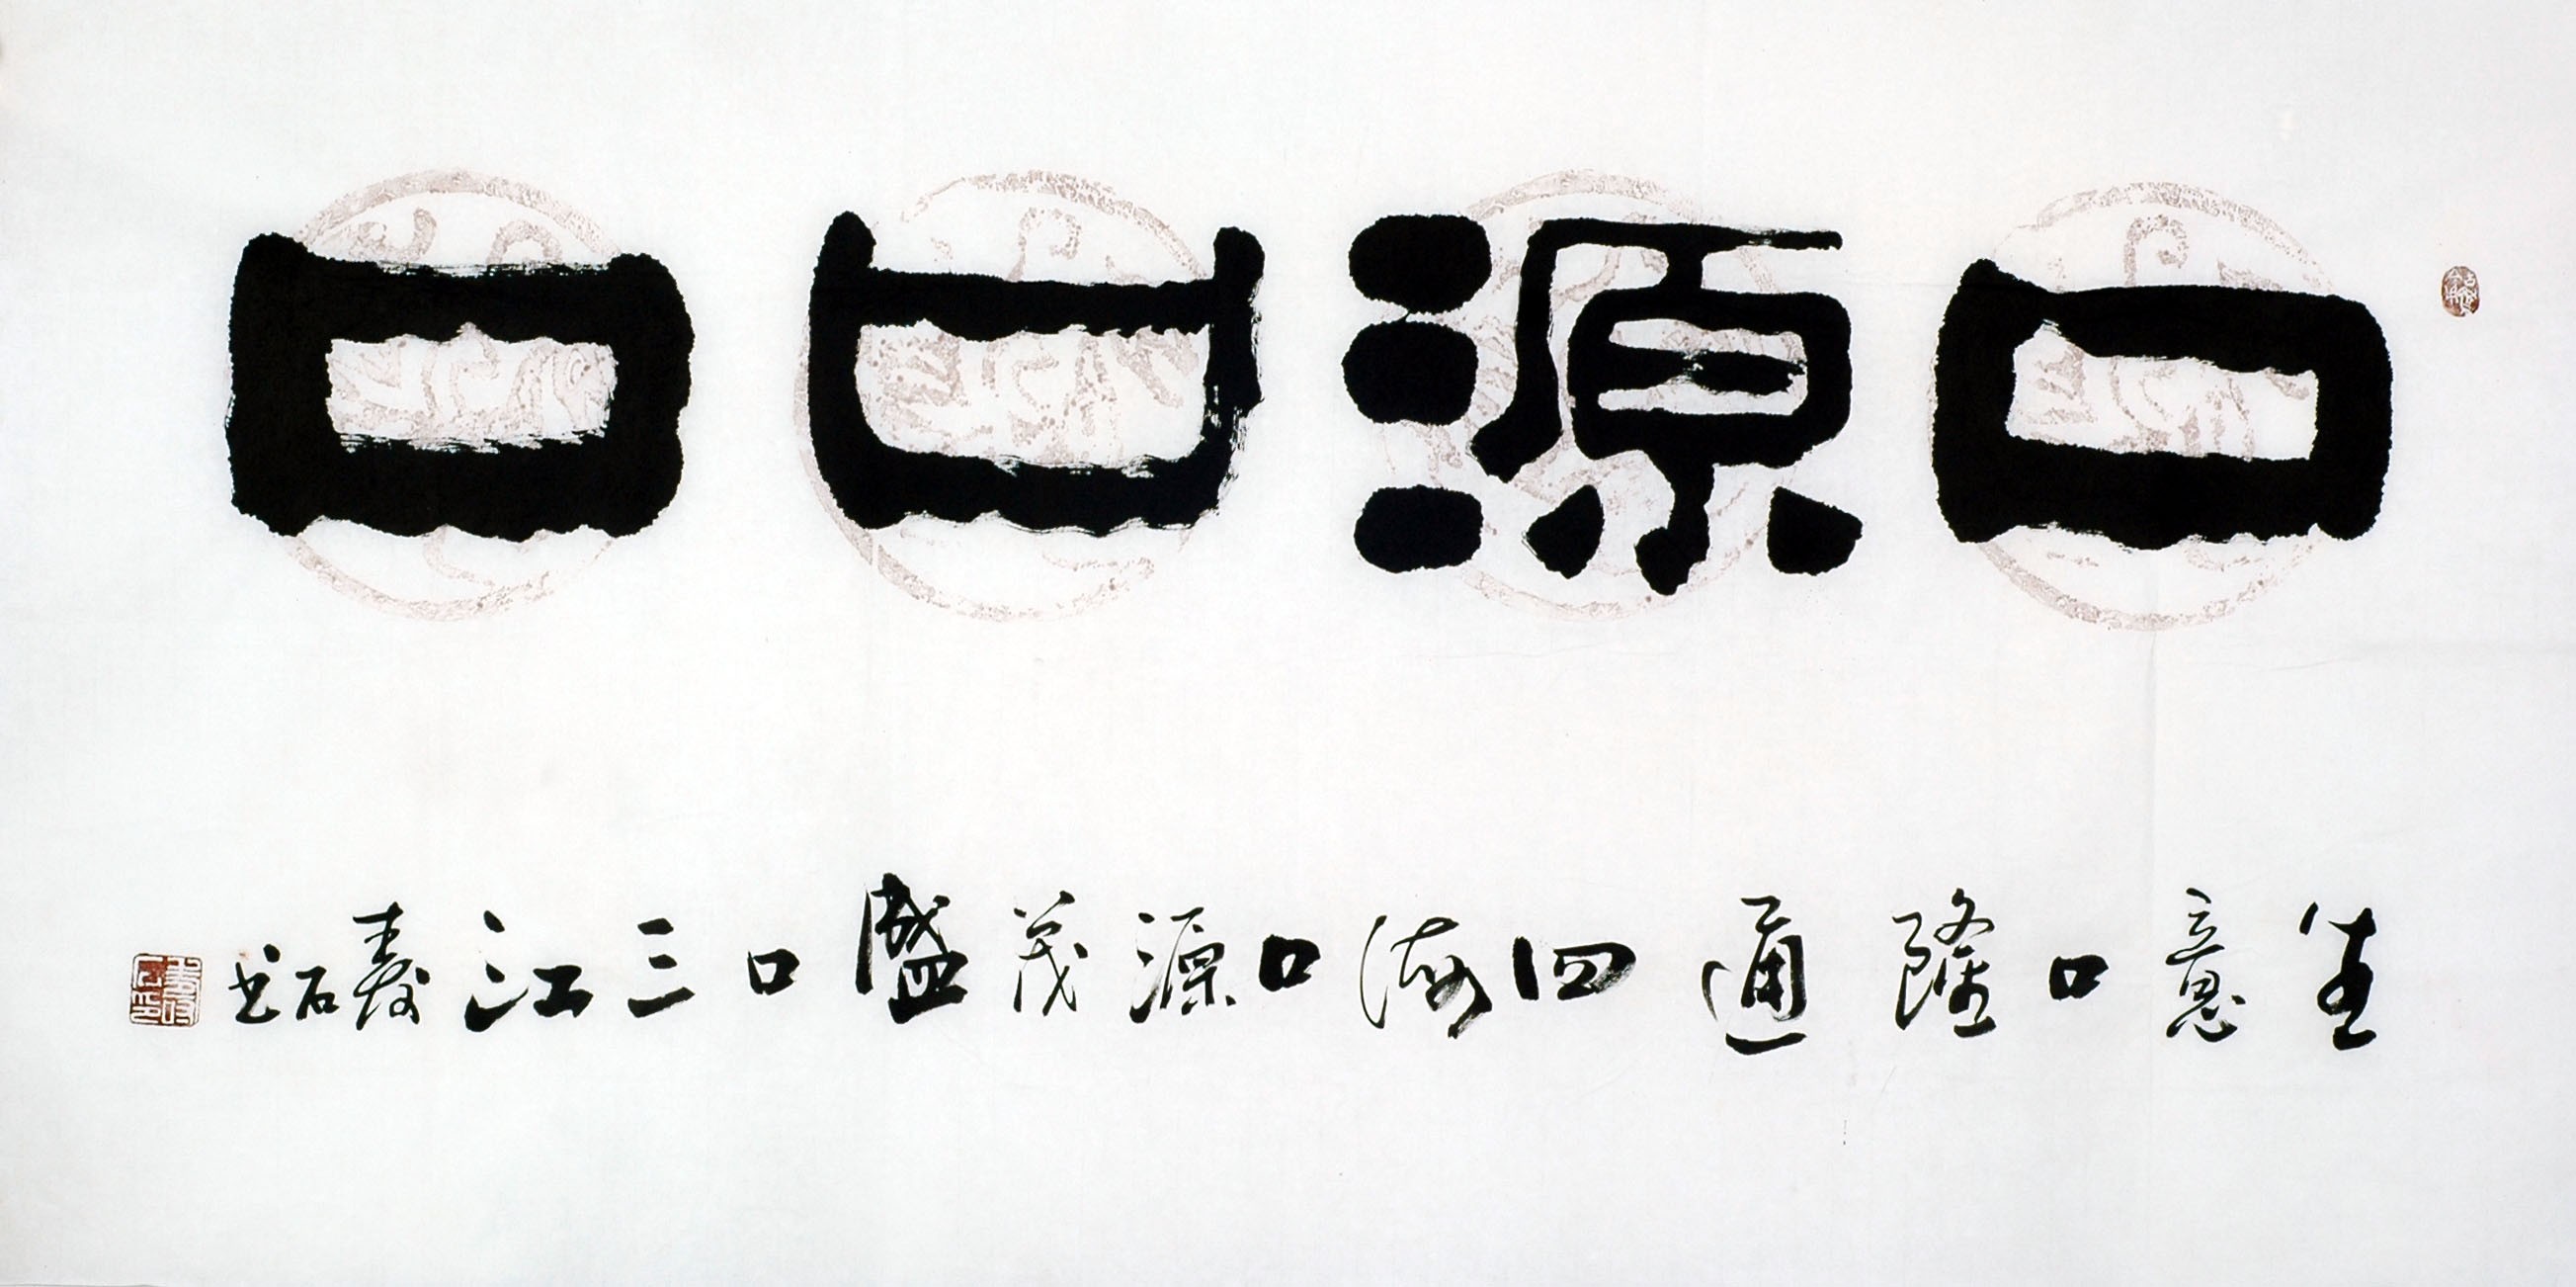 口源口口
生意口隆通四海口源茂盛口三江寿石书